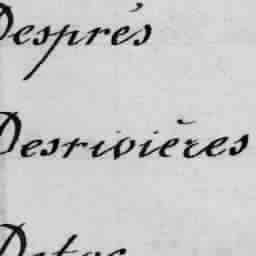 Després
Desrivières